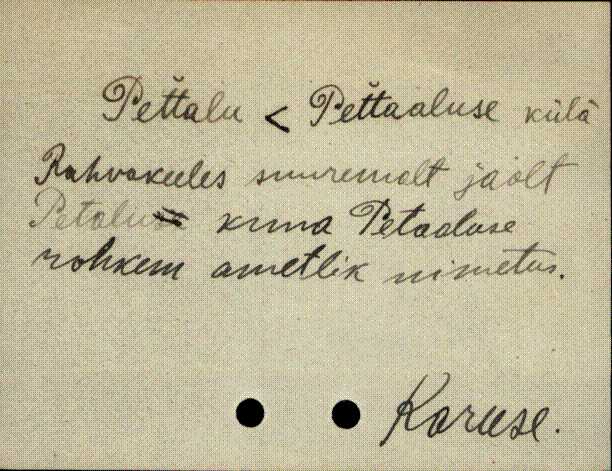 Peťtalu < Peťtaaluse küla
Rahvakeeles suuremalt jaolt
Petalu kuna Petaaluse
rohkem ametlik nimetus.
Karuse.